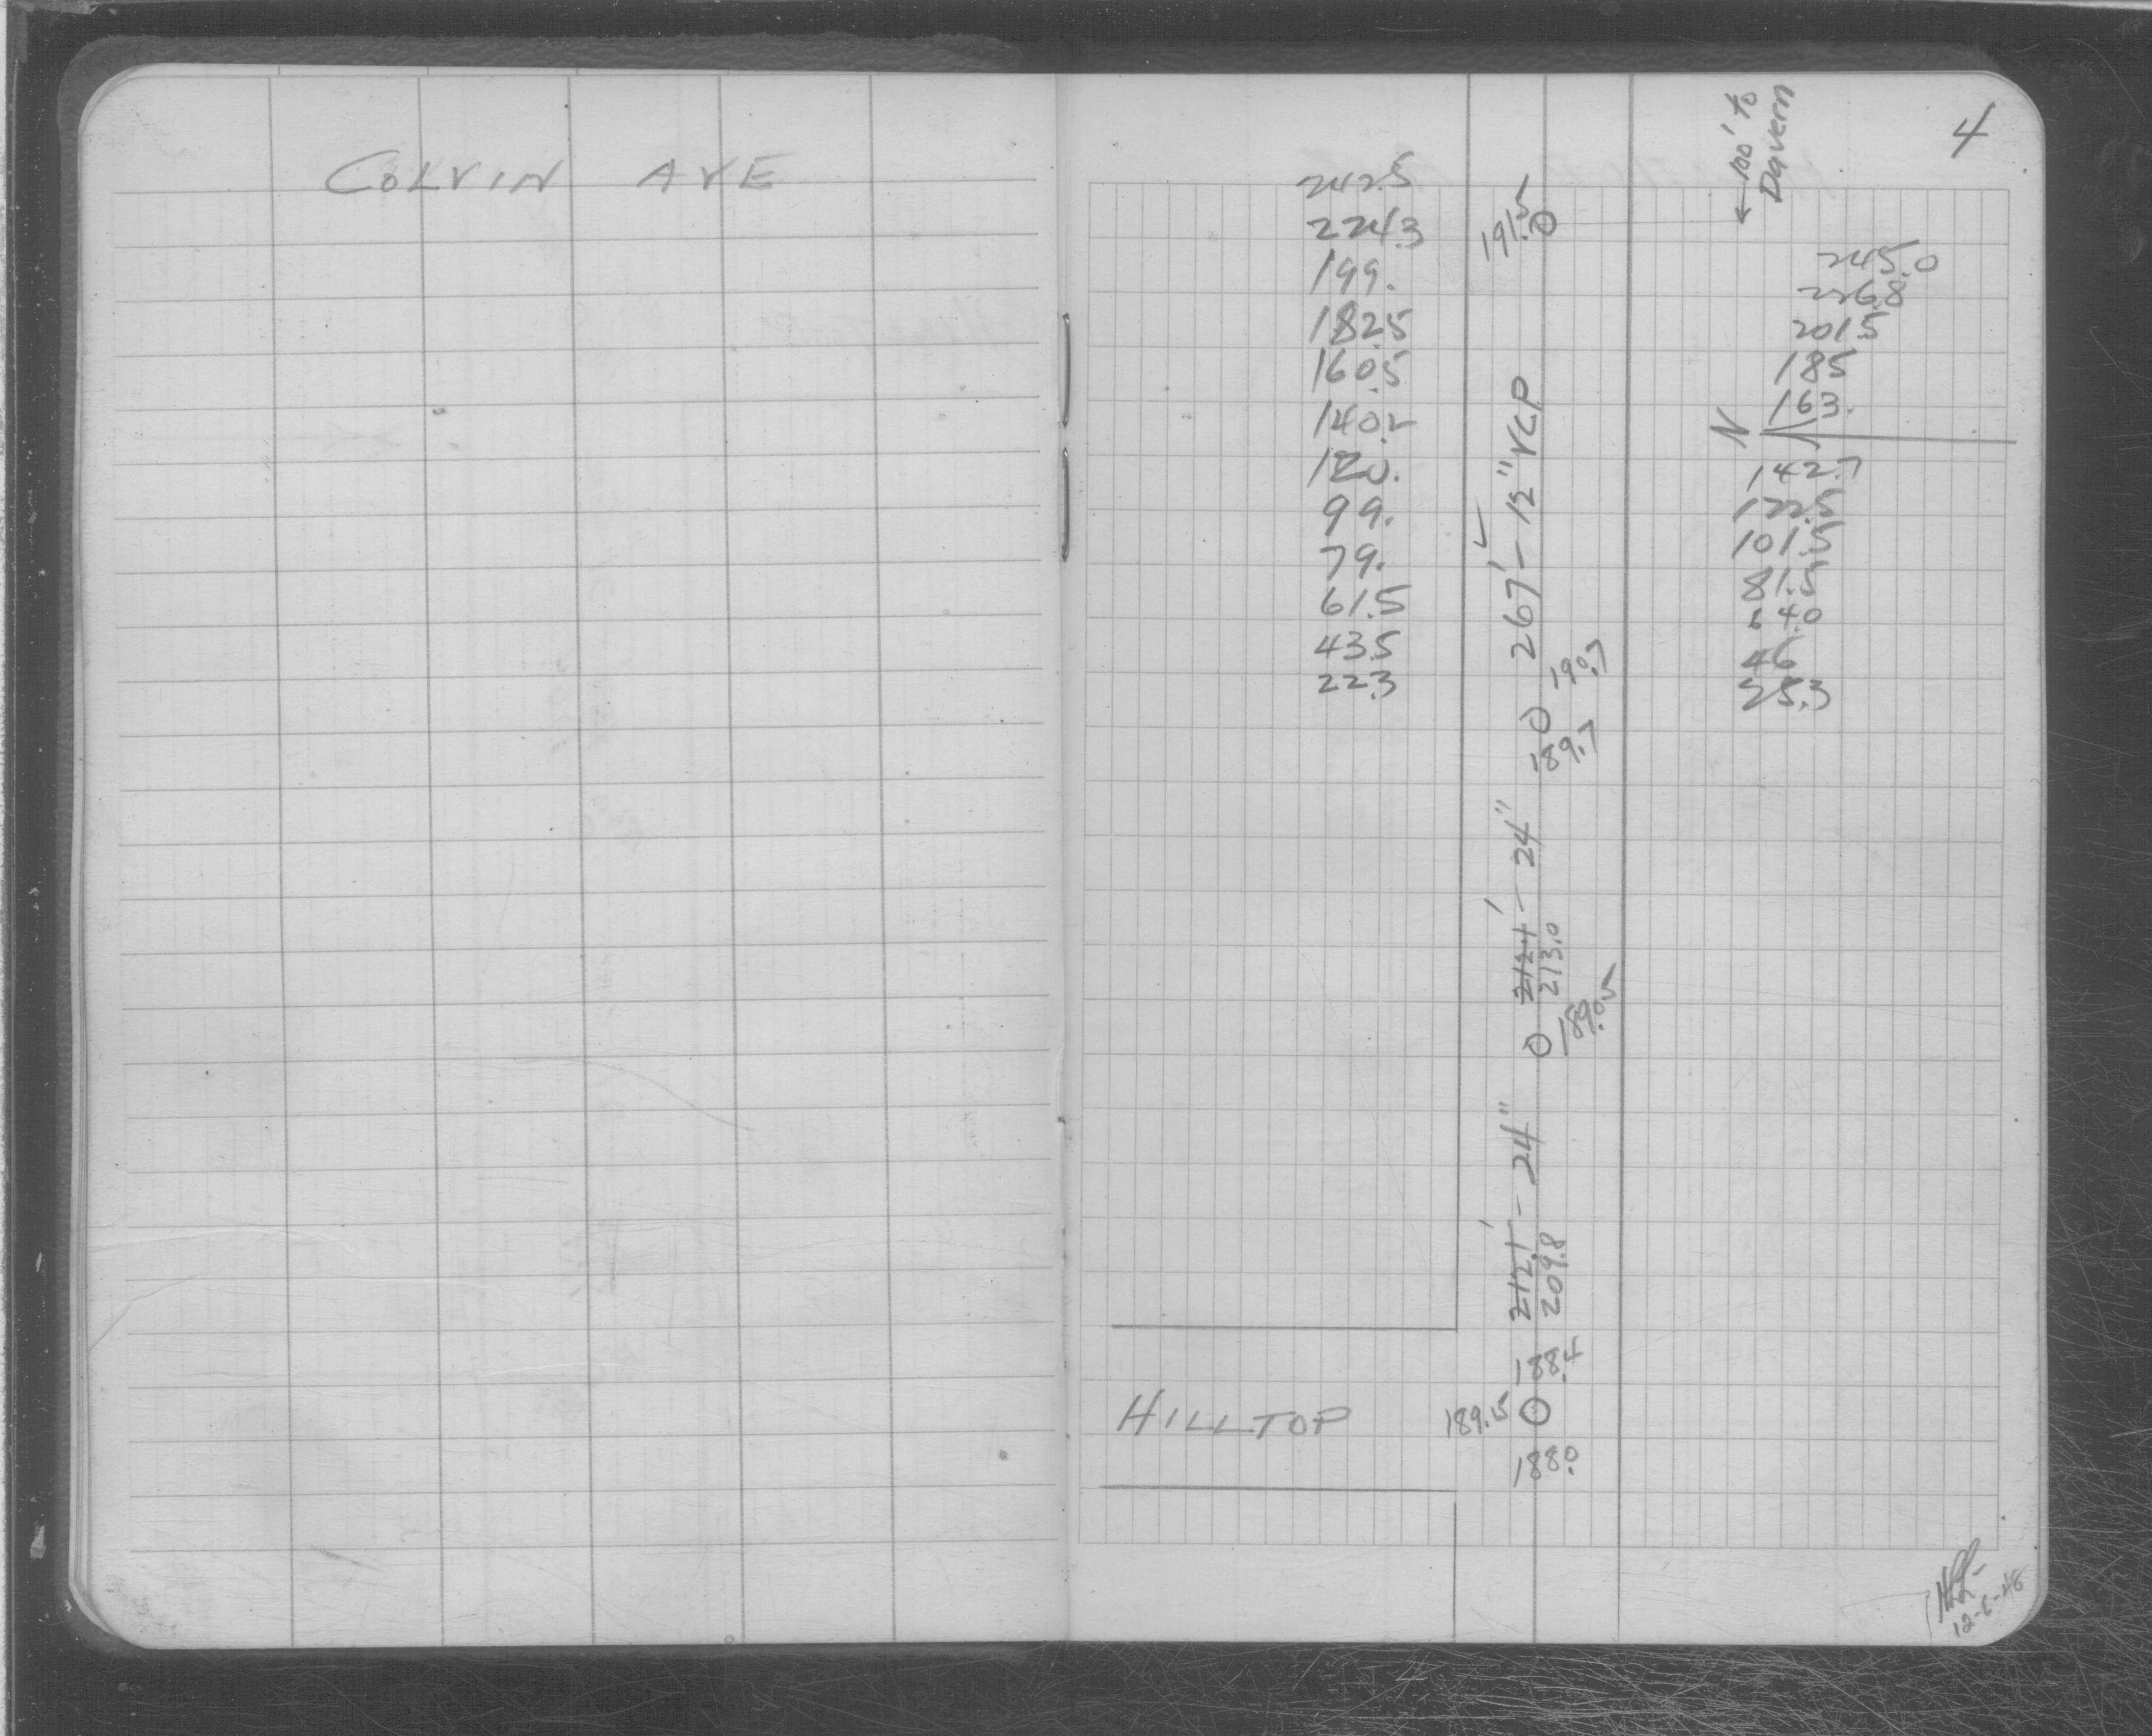 COLVIN AVE
4
← 100' to
Davern
242.5
224.3
199.
182.5
160.5
140.2
120.
99.
79.
61.5
43.5
22.3
191.5
267' - 12" VCP
190.7
189.7
212.1' - 24"
213.0
189.05
212.1' - 24"
209.8
188.4
189.15
188.0
245.0
226.8
201.5
185
163.
N
142.7
122.5
101.5
81.5
64.0
46
25.3
HILLTOP
12-6-48